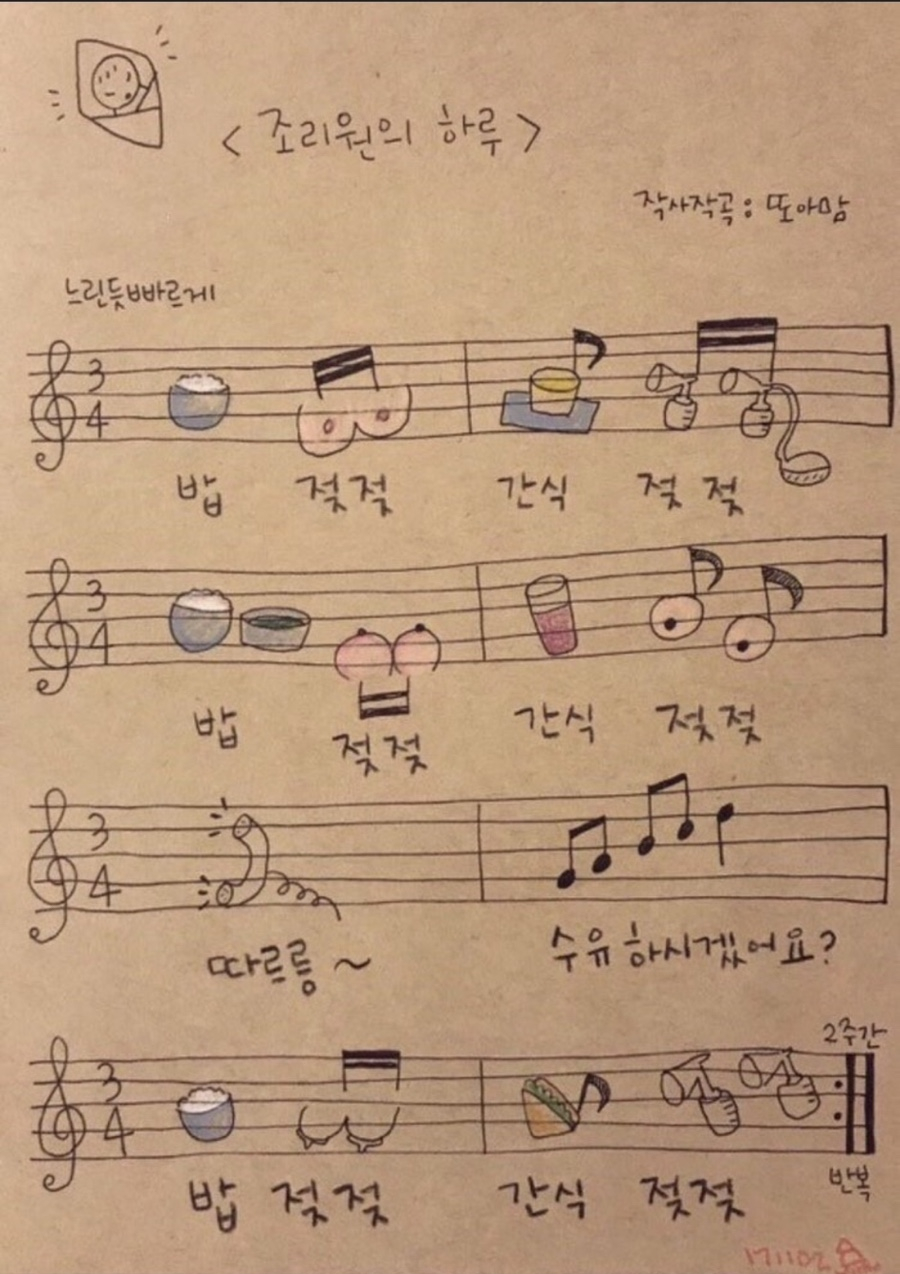 < 조리원의 하루 >
작사작곡 : 또아맘
느린듯빠르게
3 4
밥 젖젖 간식 젖 젖
3 4
밥 젖젖 간식 젖젖
3 4
따르릉~ 수유 하시겠어요?
2주간
3 4
밥 젖젖 간식 젖젖
반복
171102